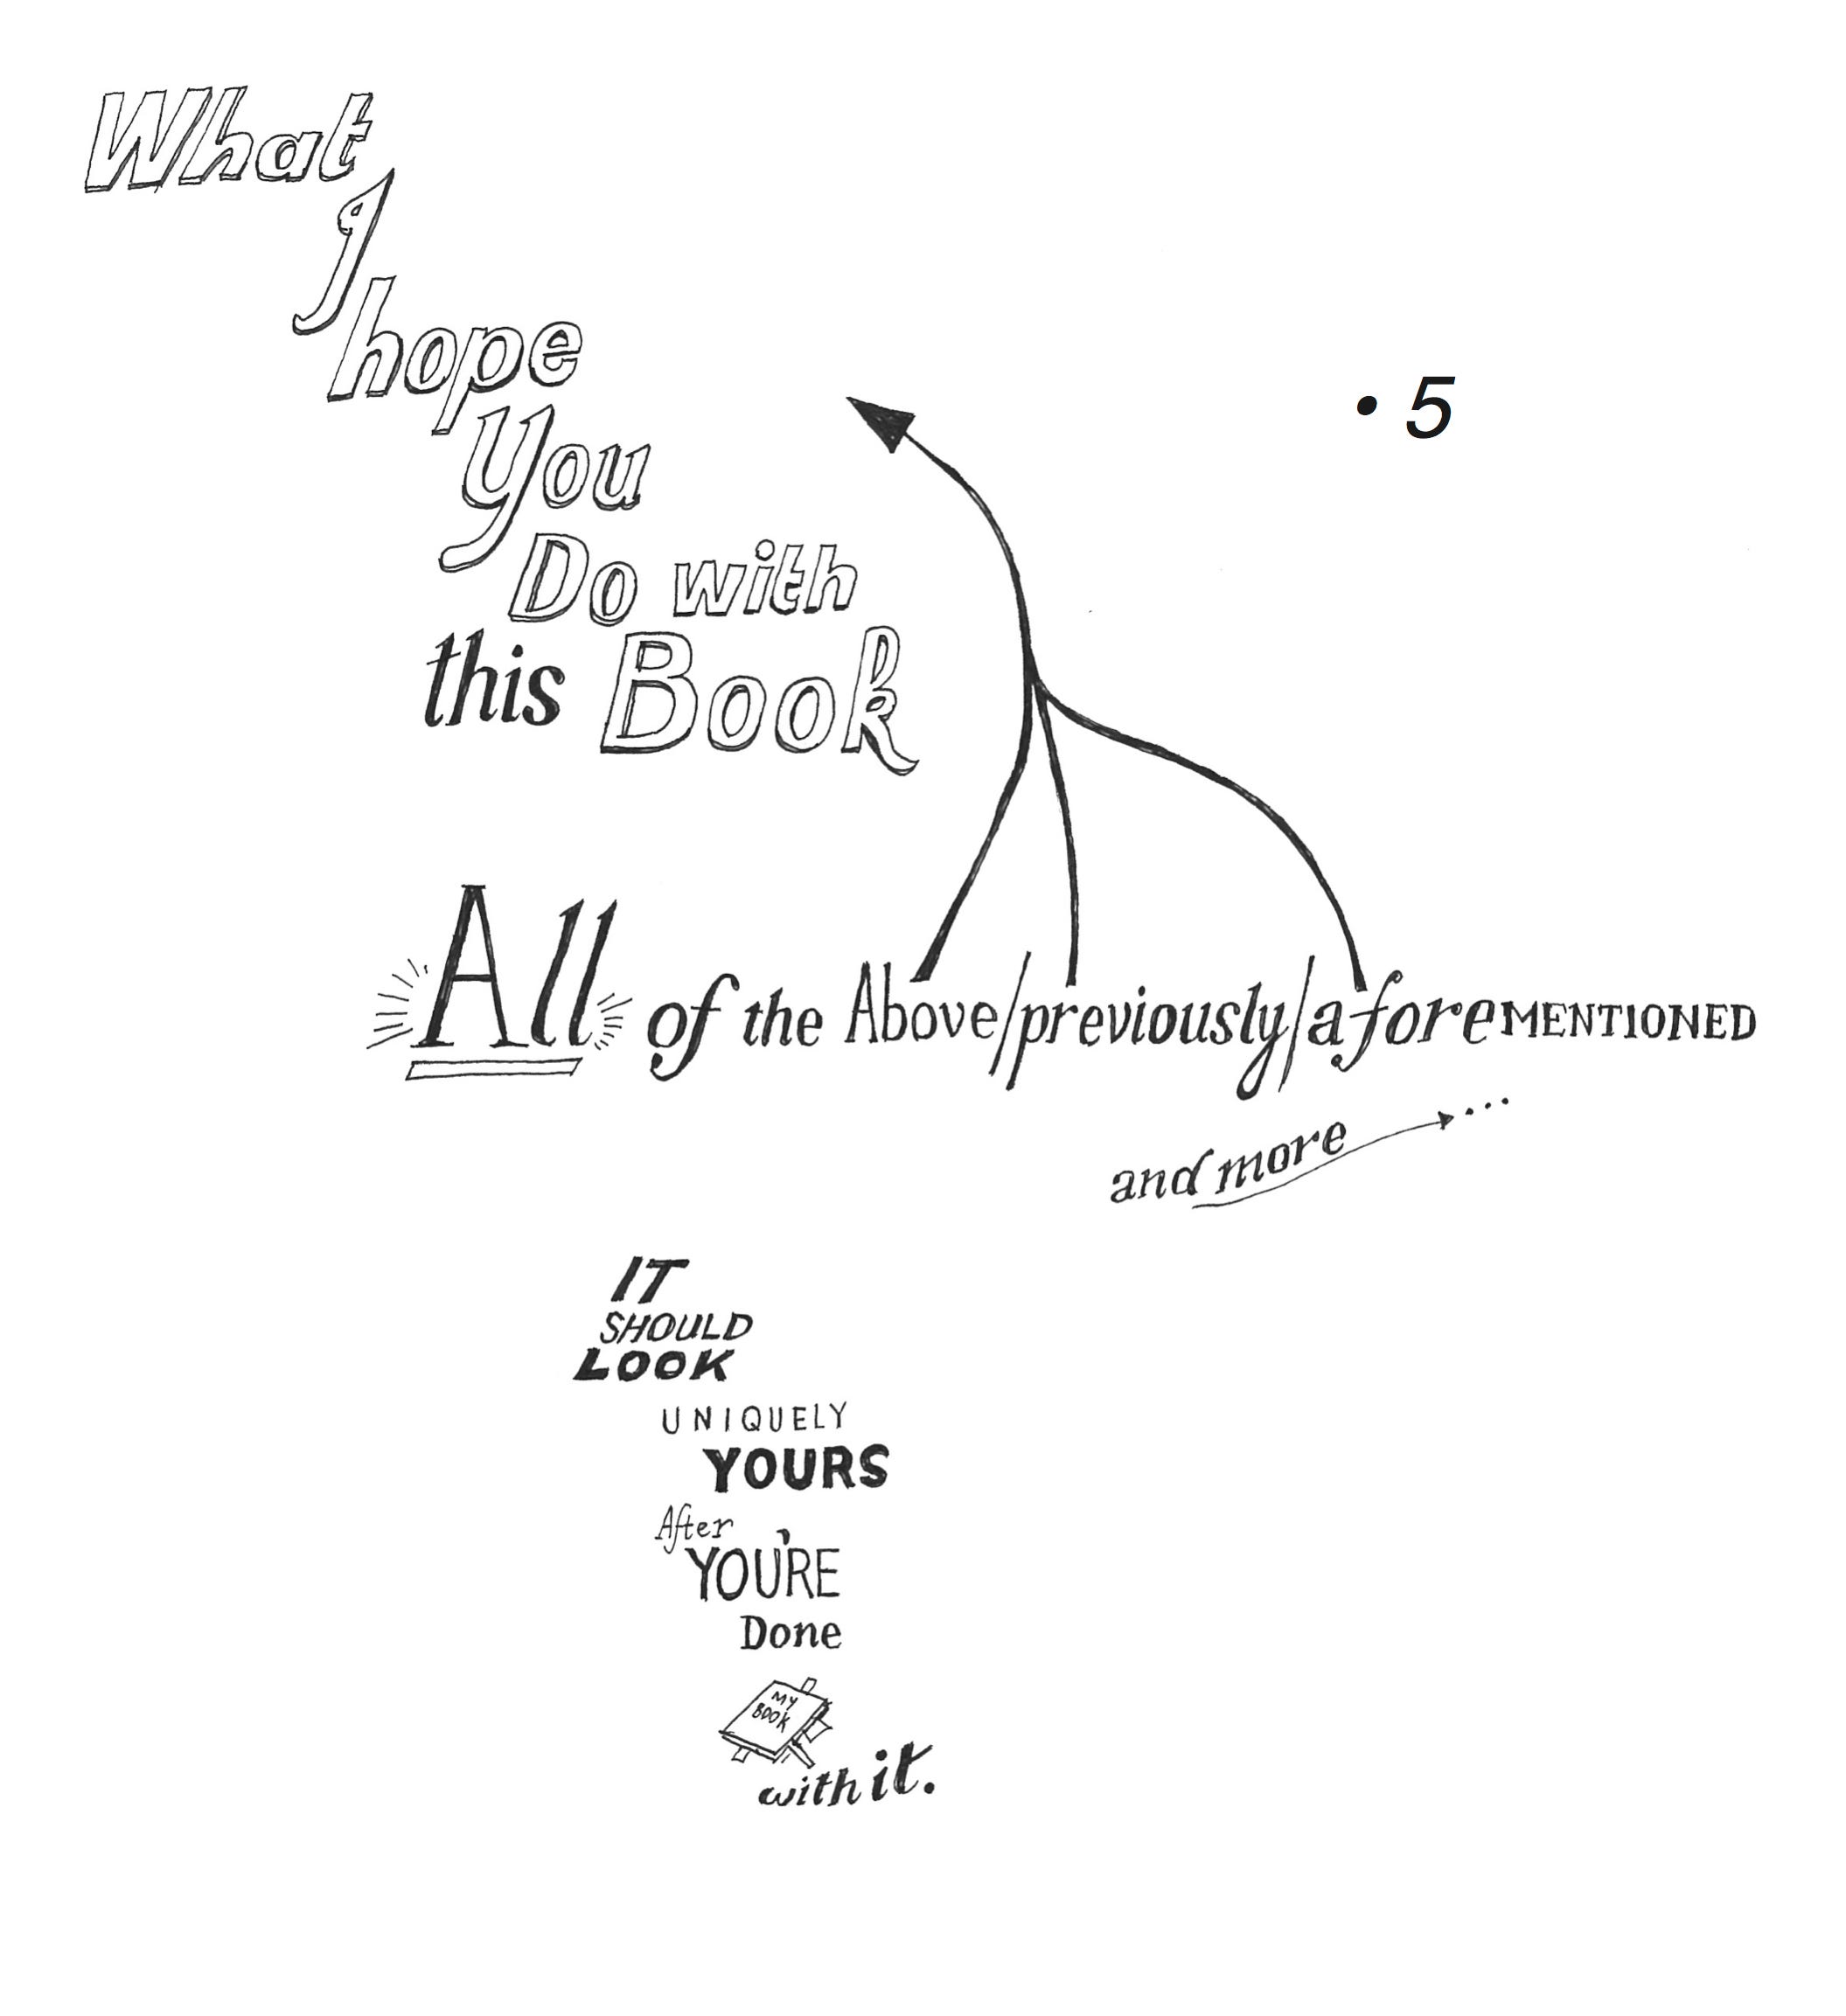 What
I
hope
You
Do with
this Book
• 5
All of the Above/previously/aforeMENTIONED
and more ...
IT
SHOULD
LOOK
UNIQUELY
YOURS
After
YOU'RE
Done
MY
BOOK
with it.